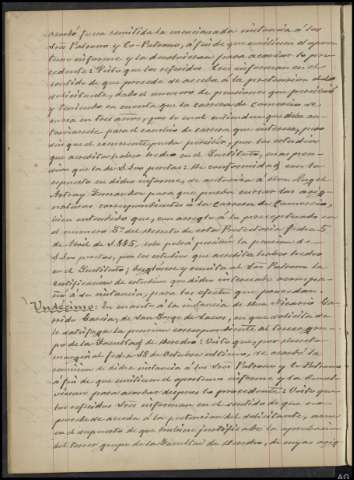 acordó fuera remitida la mencionada instancia á los
Sres Patrono y Co-Patrono, á fin de que emitieran el oportu-
no informe y la devolvieran para acordar lo pro-
cedente: Visto que los referidos Sres informan en el
sentido de que procede se acceda á la pretension del
solicitante, dado el número de pensiones que
y teniendo en cuenta que la carrera de Comercio se
en tres años, por lo cual entienden que debe au-
torizarsele para el cambio de carrera que interesa, pero
sin que el recurrente pueda percibir, por los estudios
que acredita haber hecho en el Instituto, más pen-
sion que la de
puesto en dicho informe, se autoriza á Don Angel
para que pueda cursar las asig-
naturas correspondientes á la carrera de Comercio,
bien entendido que, con arreglo á lo preceptuado en
el número 5º del decreto de esta Presidencia fecha 5
de Abril de 1885, solo podrá percibir la pension de
pesetas, por los estudios que acredita haber hecho
en el Instituto;
certificacion de estudios que dicho interesado acompa-
ña á su instancia, para los efectos que procedan.
Undécimo: En cuanto á la instancia de Don Nicasio Ca-
rrido Garcia, de San Jorge de Sacos, en que solicita se
le satisfaga la pension correspondiente al tercer gru-
po de la Facultad de Derecho: Visto que, por decreto
marginal fecha 18 de Octubre último, se acordó la
remision de dicha instancia á los Sres Patrono y Co-Patrono
á fin de que emitieran el oportuno informe y la devol-
vieran para acordar despues lo procedente: Visto que
los referidos Sres informan en el sentido de que
procede se acceda á la pretension del solicitante,
en el supuesto de que hubiera justificado la aprobacion
del tercer grupo de la Facultad de Derecho, de cuyas asig-